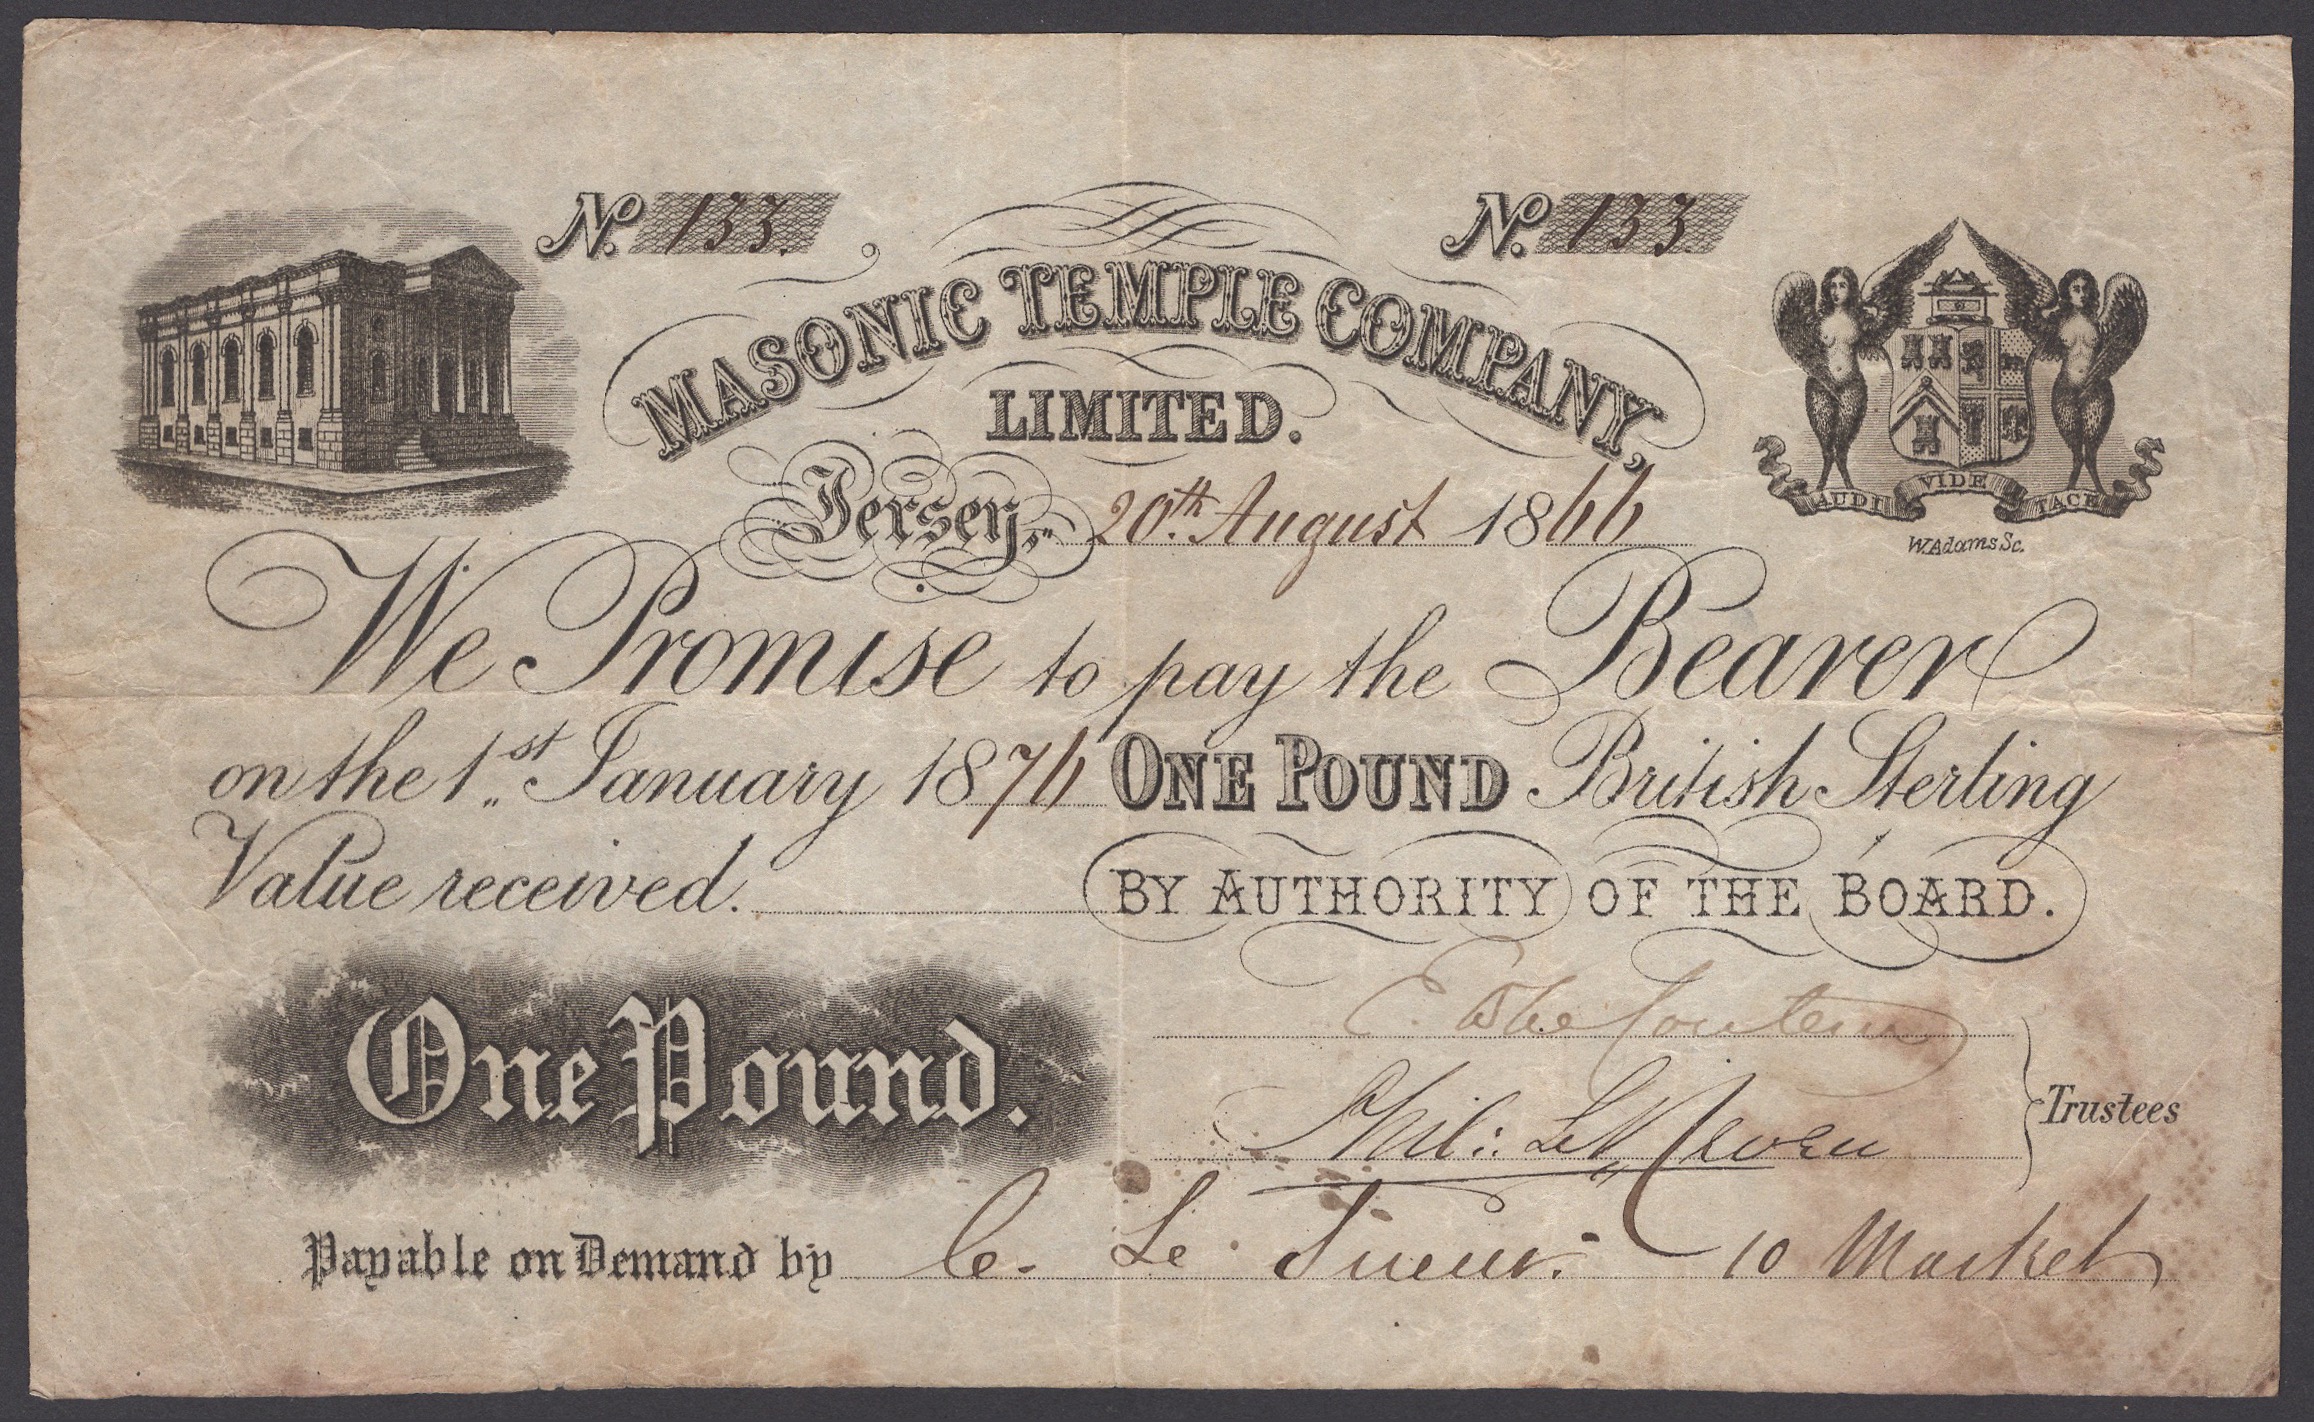 No. 133.
No. 133
MASONIC TEMPLE COMPANY,
LIMITED.
AUDI VIDE TACE
W. Adams Sc.
Jersey, 20th. August 1866
We Promise to pay the Bearer
on the 1st. January 1876 ONE POUND British Sterling
Value received. BY AUTHORITY OF THE BOARD.
One Pound.
Phil: Le
Trustees
Payable on Demand by C. Le Sueur. 10 Market